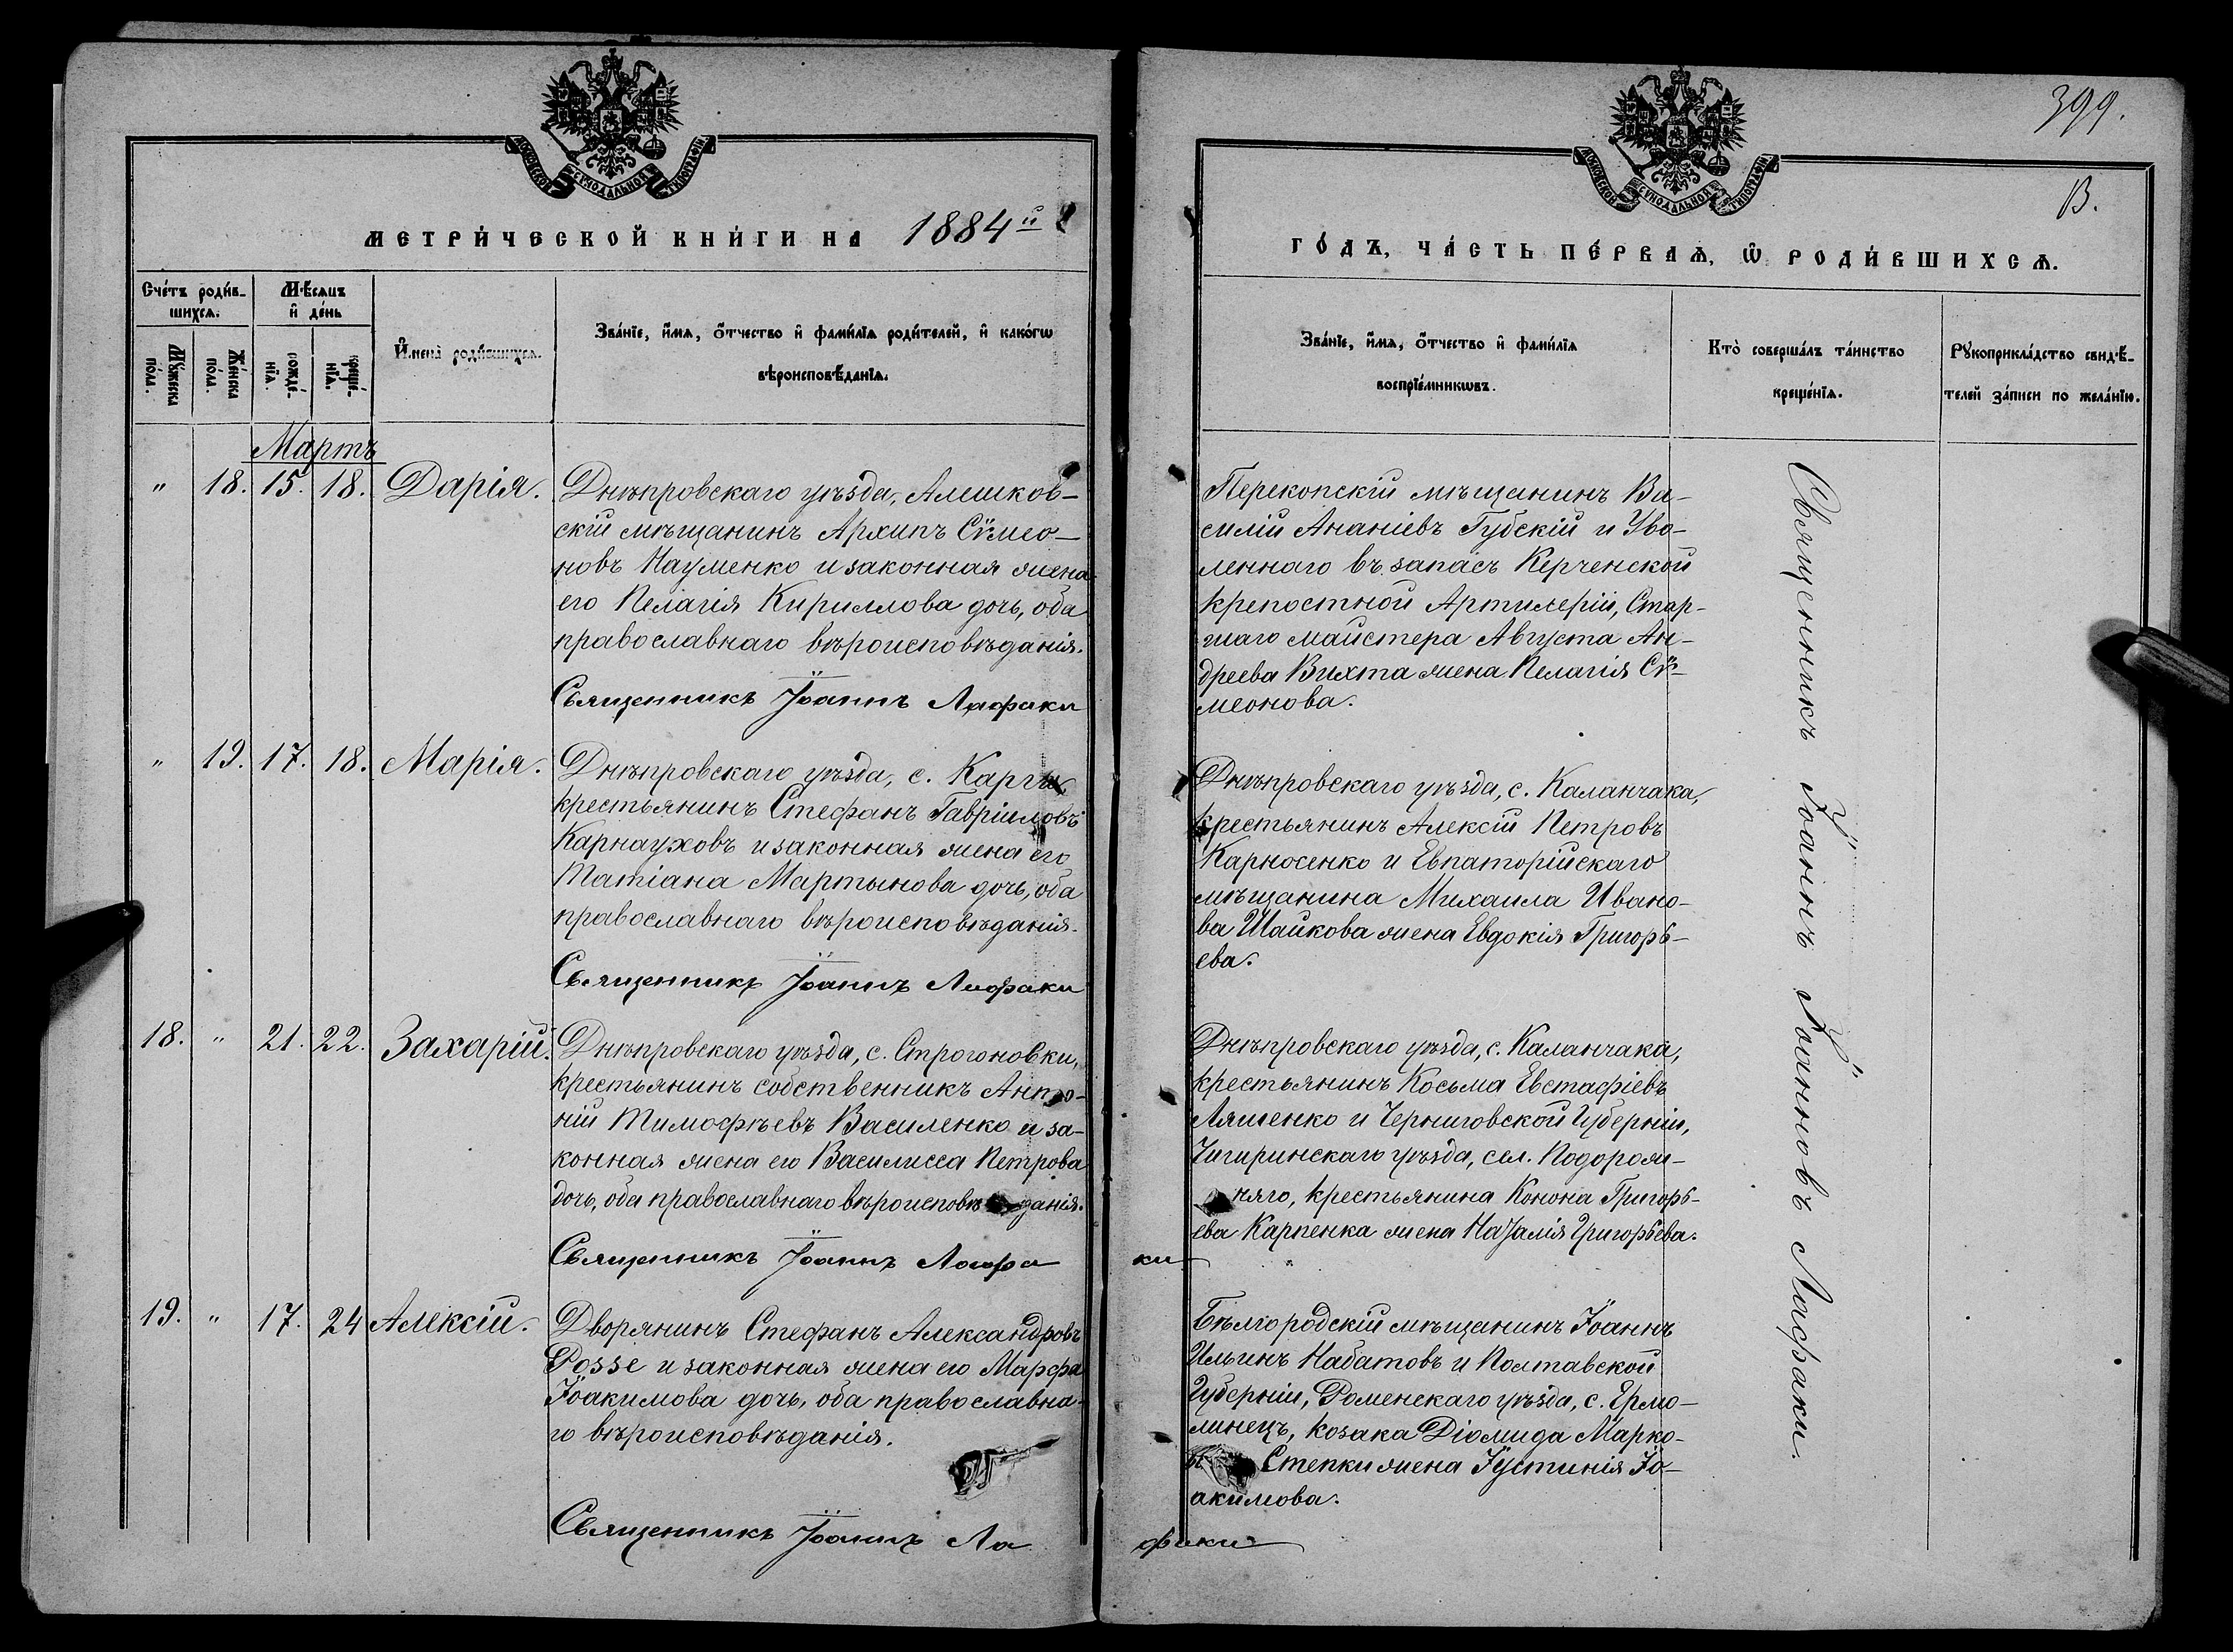 399.
В.
МОСКОВСКОЙ СѴНОДАЛЬНОЙ ТИПОГРАФІИ
МОСКОВСКОЙ СѴНОДАЛЬНОЙ ТИПОГРАФІИ
МЕТРИ́ЧЕСКОЙ КНИ́ГИ НА 1884й
ГО́ДЪ, ЧА́СТЬ ПЕ́РВАѦ, Ѡ РОДИ́ВШИХСѦ.
Сче́тъ роди́в-
шихсѧ.
Мѣ́сѧцъ
и де́нь
Мꙋ́жеска
по́ла.
Же́нска
по́ла.
рожде́-
нїѧ.
креще́-
нїѧ.
Имена̀ роди́вшихсѧ.
Зва́нїе, и́мѧ, ѻ́тчество и фами́лїѧ роди́телей, и како́гѡ
вѣроисповѣ́данїѧ.
Зва́нїе, и́мѧ, ѻ́тчество и фами́лїѧ
воспрїе́мникѡвъ.
Кто̀ соверша́лъ та́инство
креще́нїѧ.
Рꙋкоприкла́дство свидѣ́-
телей за́писи по жела́нїю.
Мартъ
" 18. 15. 18. Дарія.
Днѣпровскаго уѣзда, Алешков-
скій мѣщанинъ Архипъ Сѵмео-
новъ Науменко и законная жена
его Пелагія Кириллова дочь, оба
православнаго вѣроисповѣданія.
Священникъ Іоаннъ Лафаки
Перекопскій мѣщанинъ Ва-
силій Ананіевъ Губскій и Уво-
леннаго въ запасъ Керченской
крепостной Артилеріи, Стар-
шаго майстера Августа Ан-
дреева Вихта жена Пелагія Сѵ-
меонова.
" 19. 17. 18. Марія.
Днѣпровскаго уѣзда, с. Карги
крестьянинъ Стефанъ Гавріиловъ
Карнауховъ и законная жена его
Татіана Мартынова дочь, оба
православнаго вѣроисповѣданія.
Священникъ Іоаннъ Лафаки
Днѣпровскаго уѣзда, с. Каланчака,
крестьянинъ Алексій Петровъ
Карносенко и Евпаторійскаго
мѣщанина Михаила Ивано-
ва Шайкова жена Евдокія Григорь-
ева.
18. " 21. 22. Захарій.
Днѣпровскаго уѣзда, с. Строгоновки,
крестьянинъ собственникъ Анто-
ній Тимофѣевъ Василенко и за-
конная жена его Василисса Петрова
дочь, оба православнаго вѣроисповѣданія.
Священникъ Іоаннъ Лафаки
Днѣпровскаго уѣзда, с. Каланчака,
крестьянинъ Косьма Евстафіевъ
Ляшенко и Черниговской Губерніи,
Чигиринскаго уѣзда, сел. Подорож-
няго, крестьянина Конона Григорь-
ева Карпенка жена Наталія Григорьева.
19. " 17. 24 Алексій.
Дворянинъ Стефанъ Александровъ
Роззе и законная жена его Марфа
Іоакимова дочь, оба православна-
го вѣроисповѣданія.
Священникъ Іоаннъ Лафаки
Бѣлгородскій мѣщанинъ Іоаннъ
Ильинъ Набатовъ и Полтавской
Губерніи, Роменскаго уѣзда, с. Ермо-
линецъ, козака Діомида Марко-
Степки жена Іустинія Іо-
акимова.
Священникъ Іоаннъ Іоанновъ Лафаки.